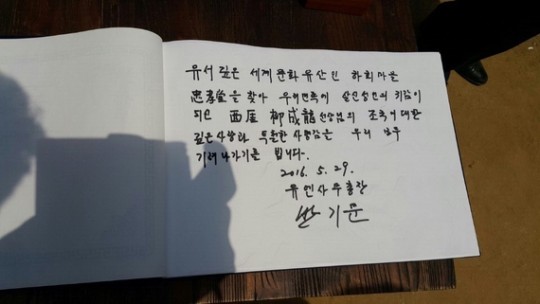 유서 깊은 세계문화유산인 하회마을
忠孝堂을 찾아 우리민족에 살신성인의 귀감이
되신 西厓 柳成龍선생님의 조국에 대한
깊은사랑과 투철한 사명감을 우리 모두
기려나가기를 빕니다.
2016. 5. 29.
유엔사무총장
반기문